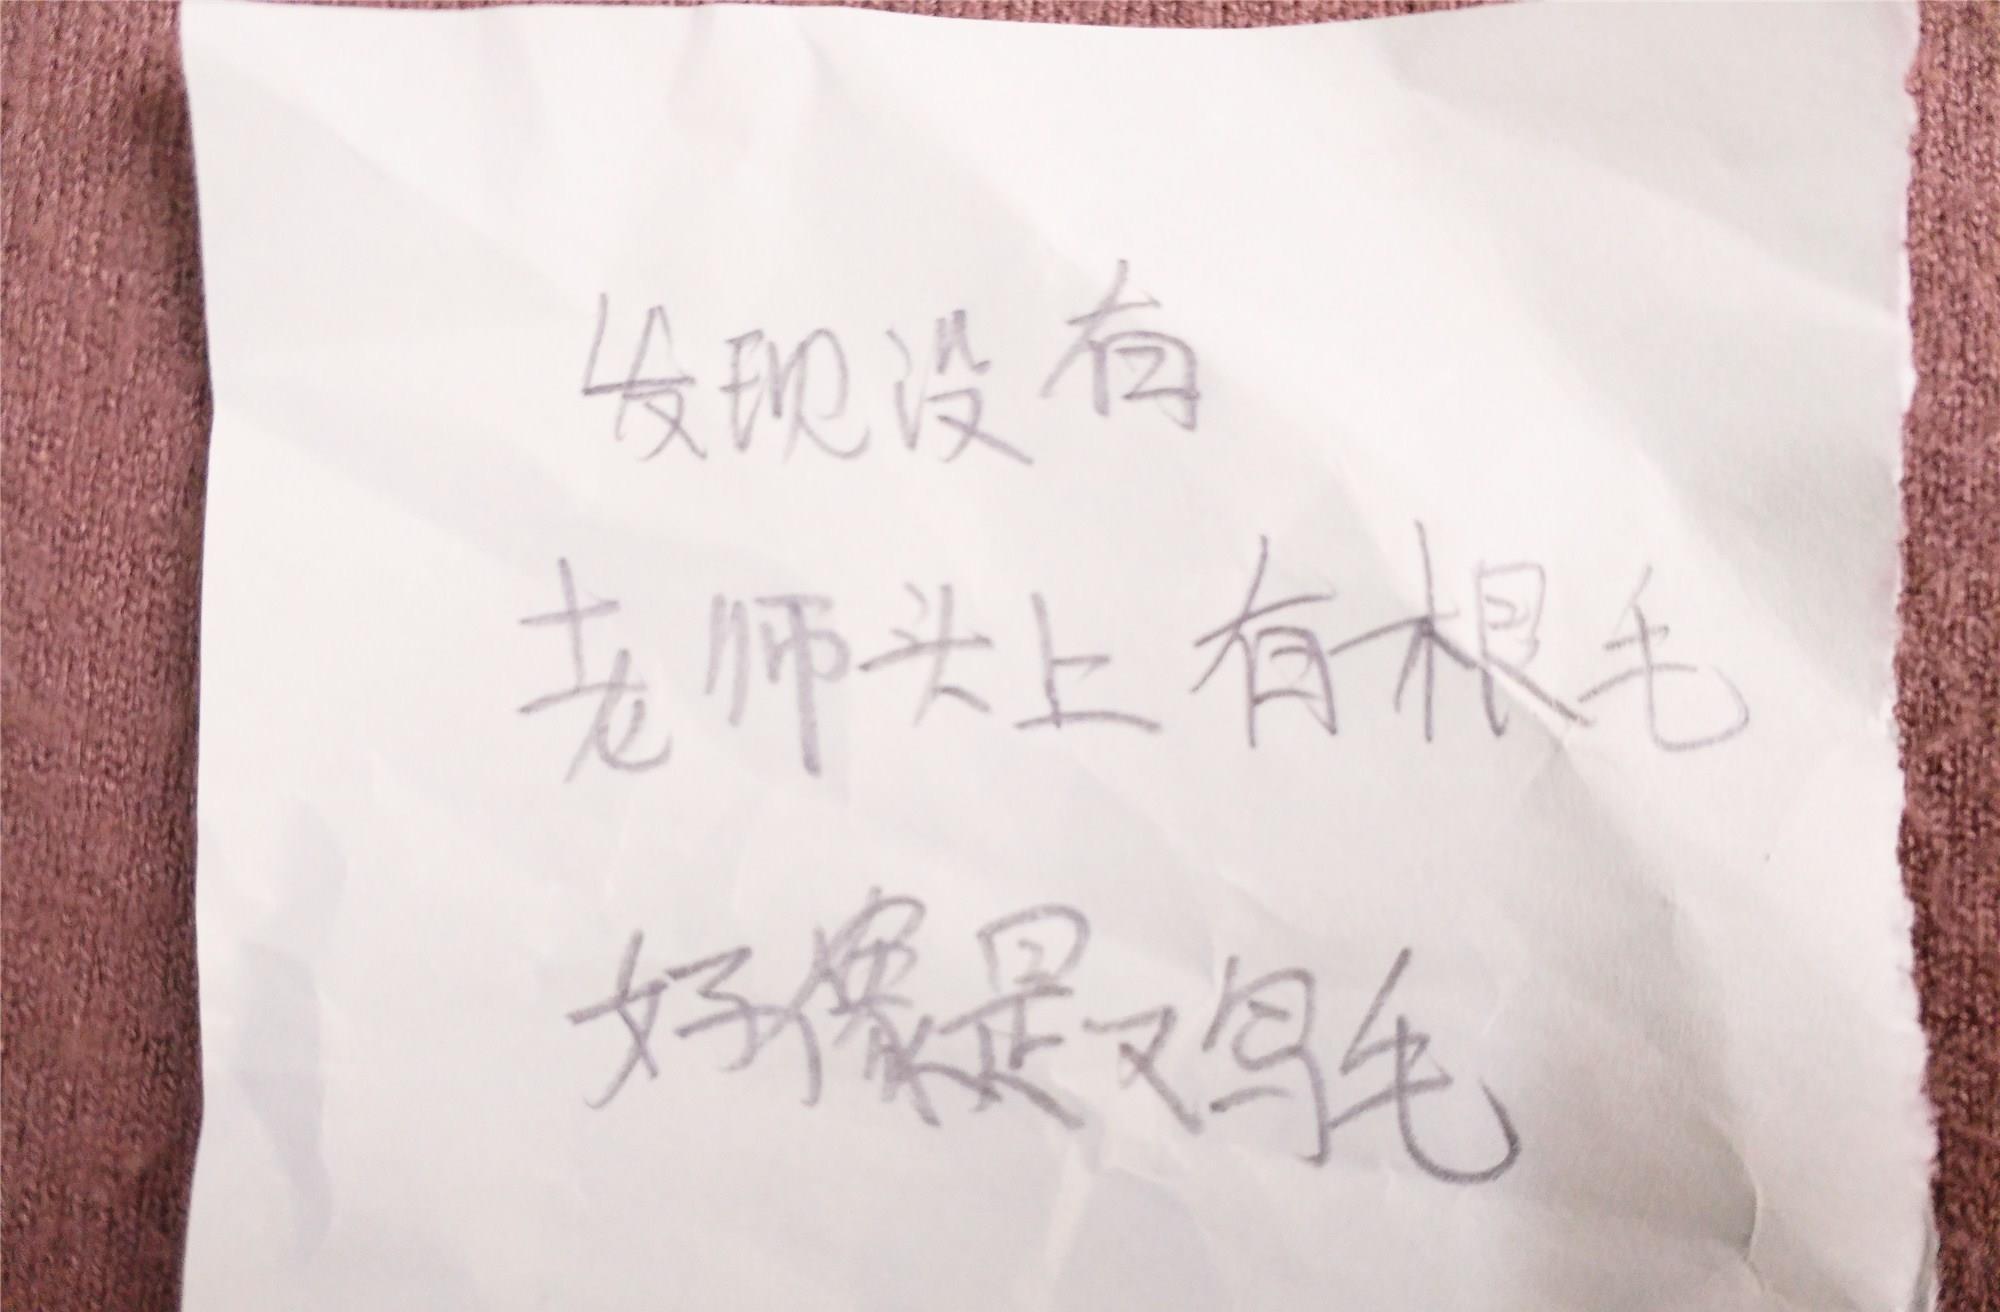 发现没有
老师头上有根毛
好像是鸡毛